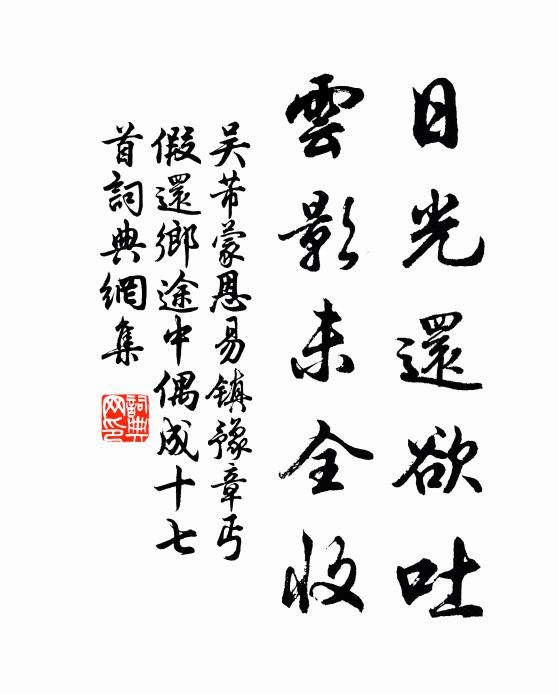 日光還欲吐
雲影未全收
吴芾蒙恩易鎮豫章丐
假還鄉途中偶成十七
首詞典網集
詞典
网印